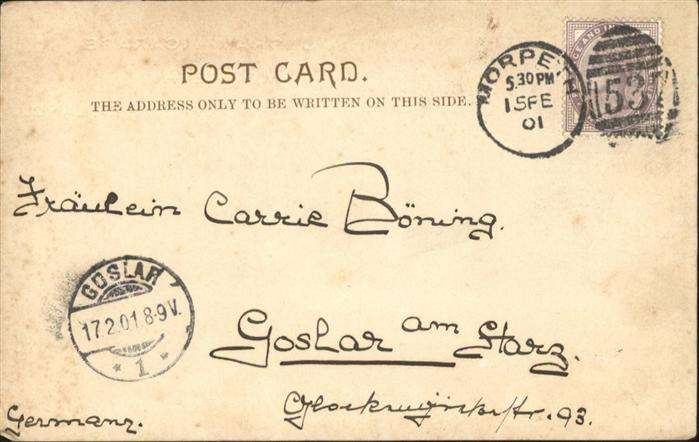 POST CARD.
THE ADDRESS ONLY TO BE WRITTEN ON THIS SIDE.
MORPETH
5.30 PM
15 FE
01
153
Fräulein Carrie Böning.
GOSLAR
17.2.01.8-9V.
* 1 *
Goslar am Harz.
93.
Germany.